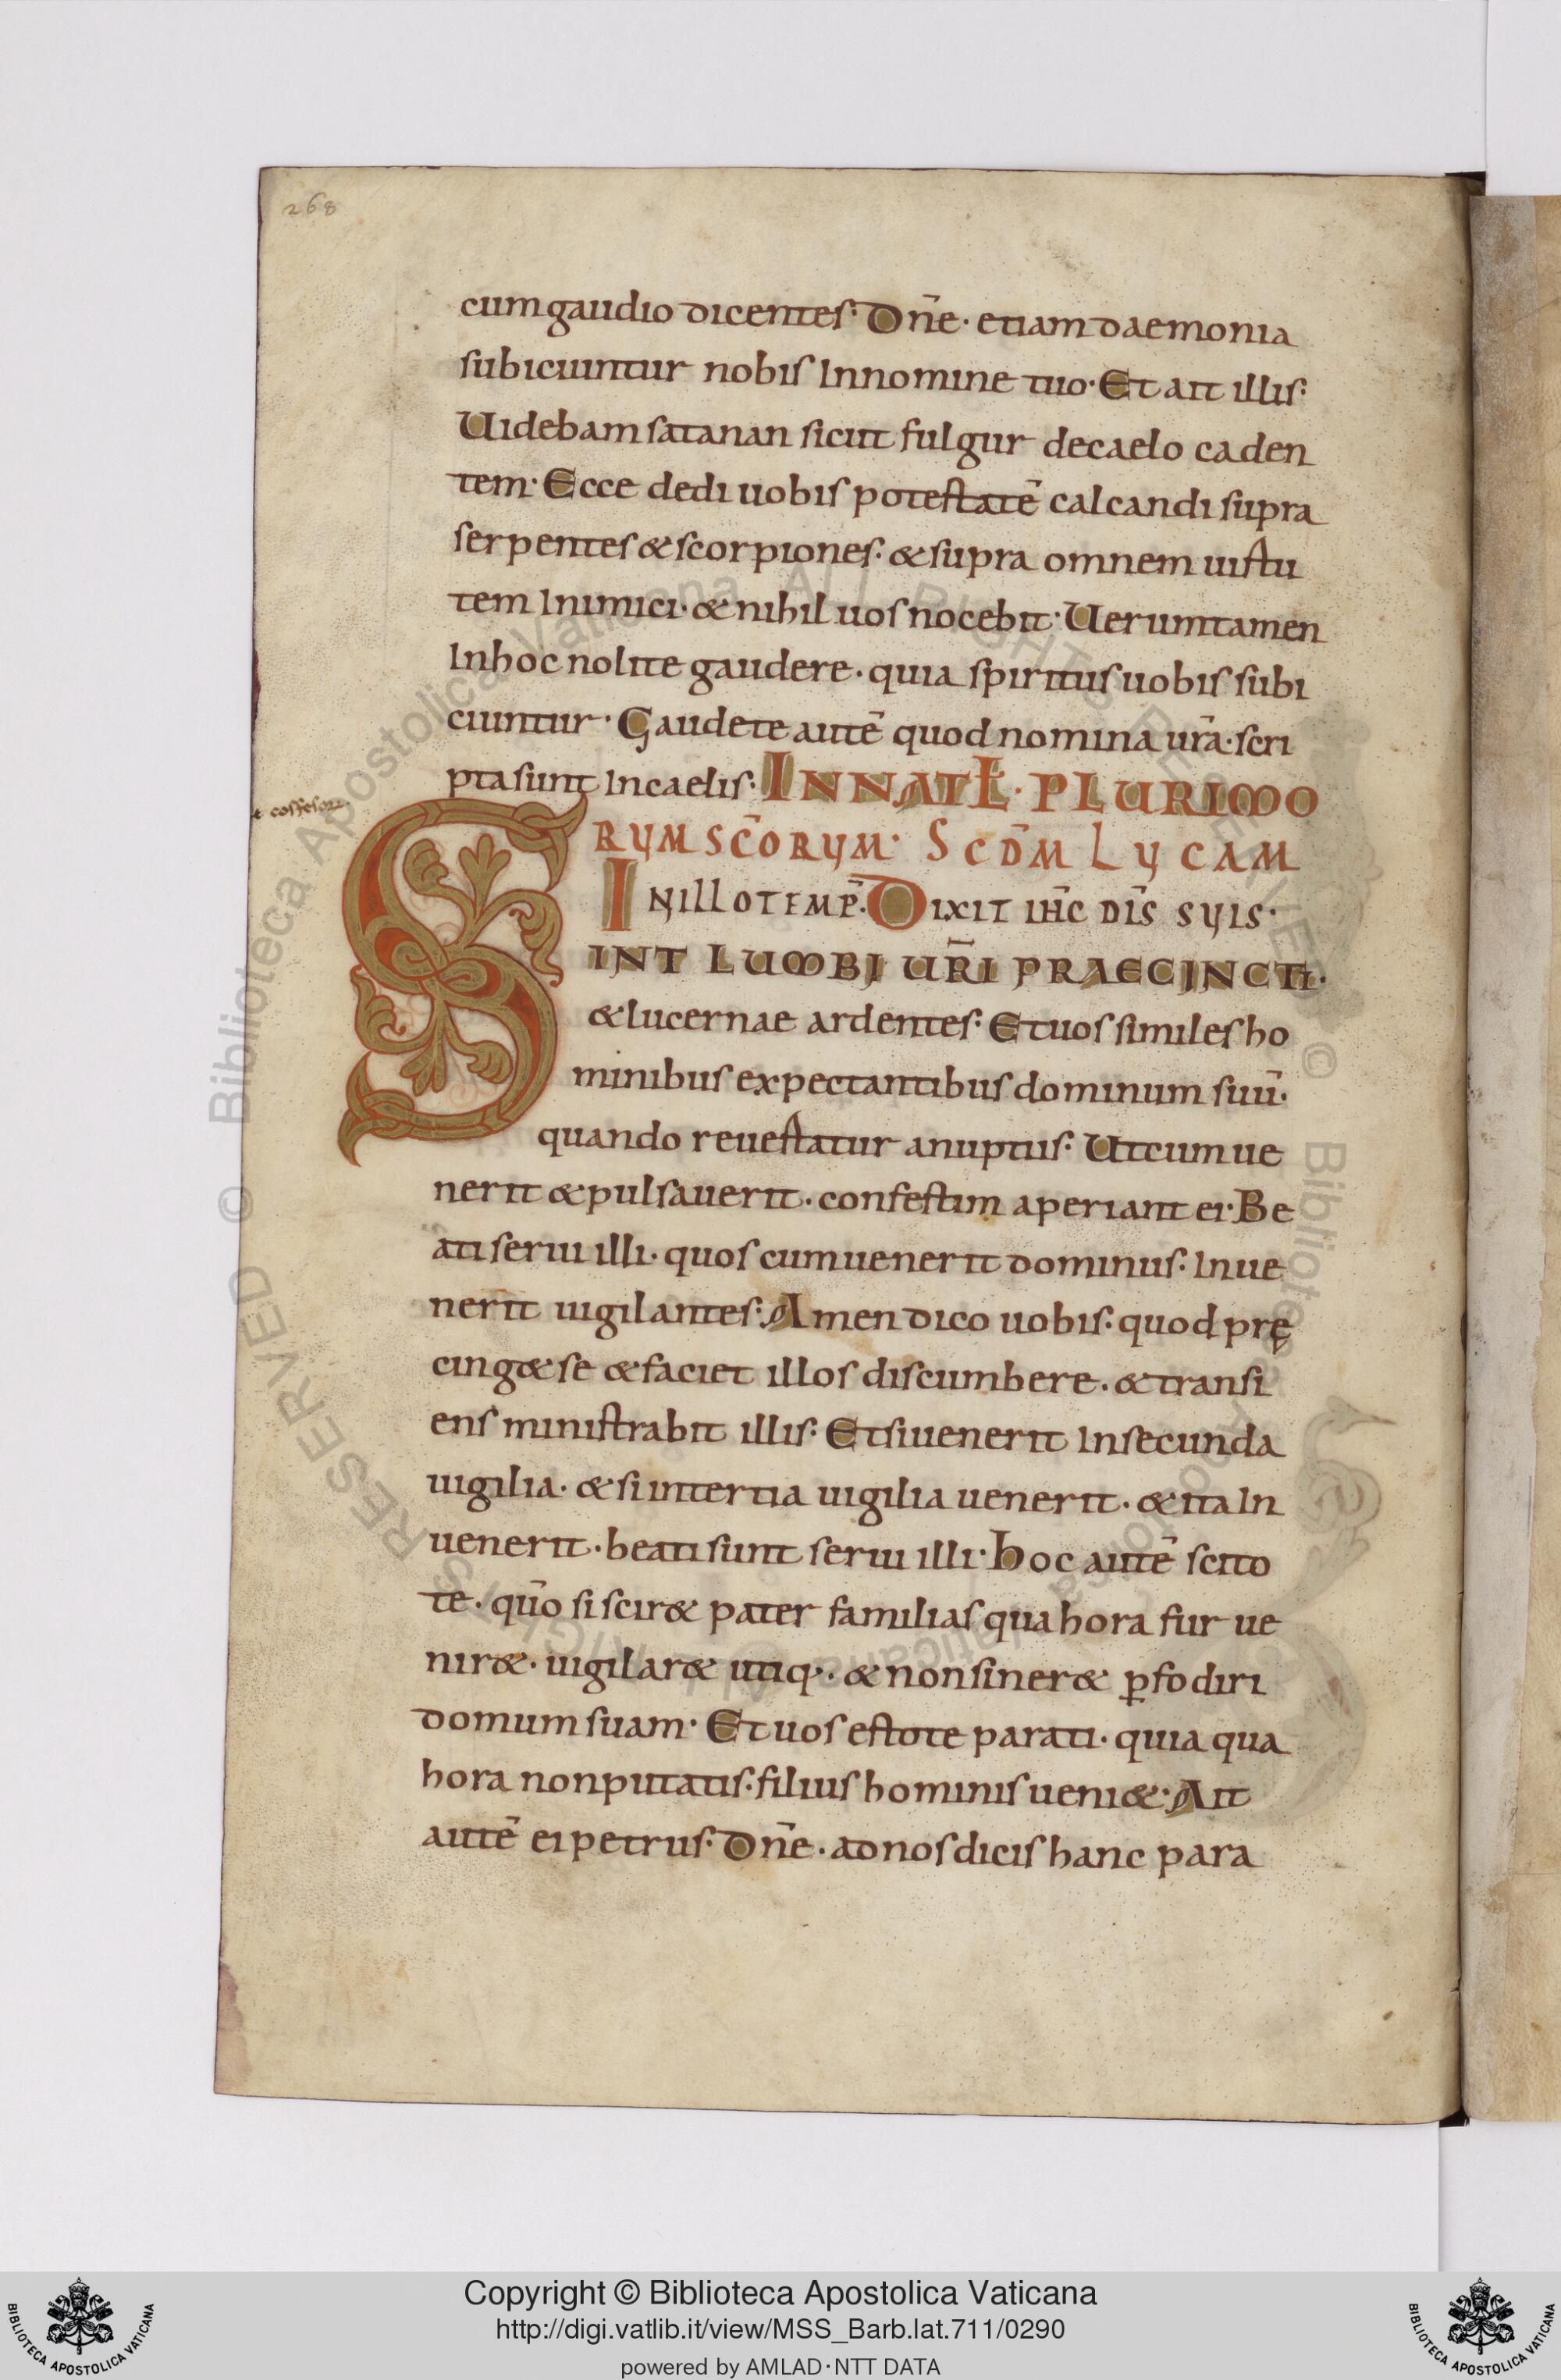 268
cum gaudio dicentes· Dñe· etiam daemonia
subiciuntur nobis In nomine tuo· Et ait illis·
Uidebam satanan sicut fulgur de caelo caden
tem· Ecce dedi uobis potestatē calcandi supra
serpentes & scorpiones· & supra omnem uirtu
tem Inimici· & nihil uos nocebit· Uerumtamen
In hoc nolite gaudere· quia spiritus uobis subi
ciuntur· Gaudete autē quod nomina ur̄a· scri
pta sunt In caelis· IN NATƚ· PLURIMO
RUM SC̄ORUM· SCD̄M LUCAM
IN ILLO TEMP̄· DIXIT IH̄C DIS̄ SUIS·
SINT LUMBI UR̄I PRAECINCTI·
& lucernae ardentes· Et uos similes ho
minibus expectantibus dominum suū·
quando reuertatur a nuptiis· Ut cum ue
nerit & pulsauerit· confestim aperiant ei· Be
ati serui illi· quos cum uenerit dominus· Inue
nerit uigilantes· Amen dico uobis· quod prę
cing& se & faciet illos discumbere· & transi
ens ministrabit illis· Et si uenerit In secunda
uigilia· & si in tertia uigilia uenerit· & ita In
uenerit· beati sunt serui illi· hoc autē scito
te· qūo si scir& pater familias qua hora fur ue
nir&· uigilar& utiq;· & non siner& ꝑfodiri
domum suam· Et uos estote parati· quia qua
hora non putatis· filius hominis ueni&· Ait
autē ei petrus· Dñe· ad nos dicis hanc para
© Biblioteca Apostolica Vaticana ALL RIGHTS RESERVED
Copyright © Biblioteca Apostolica Vaticana
http://digi.vatlib.it/view/MSS_Barb.lat.711/0290
powered by AMLAD·NTT DATA
BIBLIOTECA APOSTOLICA VATICANA
BIBLIOTECA APOSTOLICA VATICANA